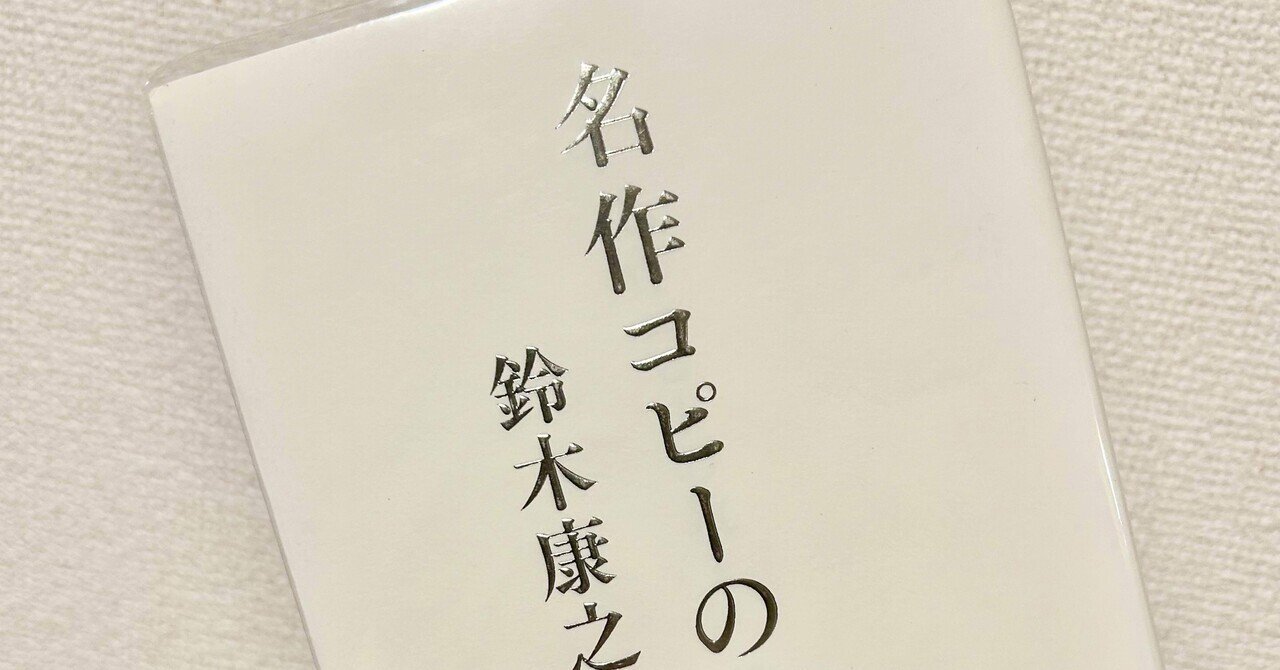 名作コピーの
鈴木康之